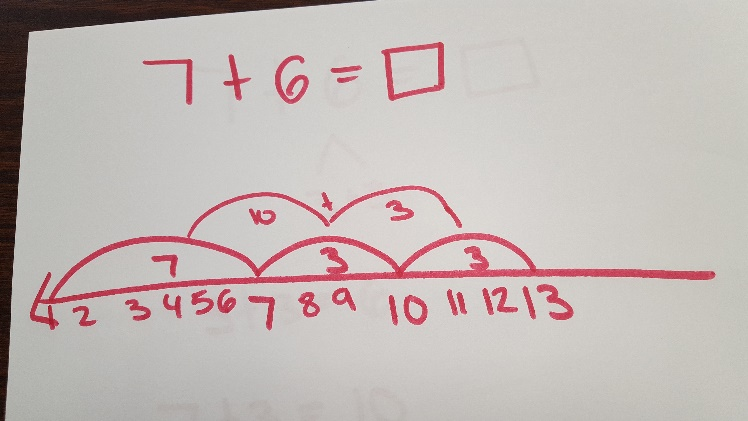 7 + 6 = □
10 + 3
7 3 3
1 2 3 4 5 6 7 8 9 10 11 12 13